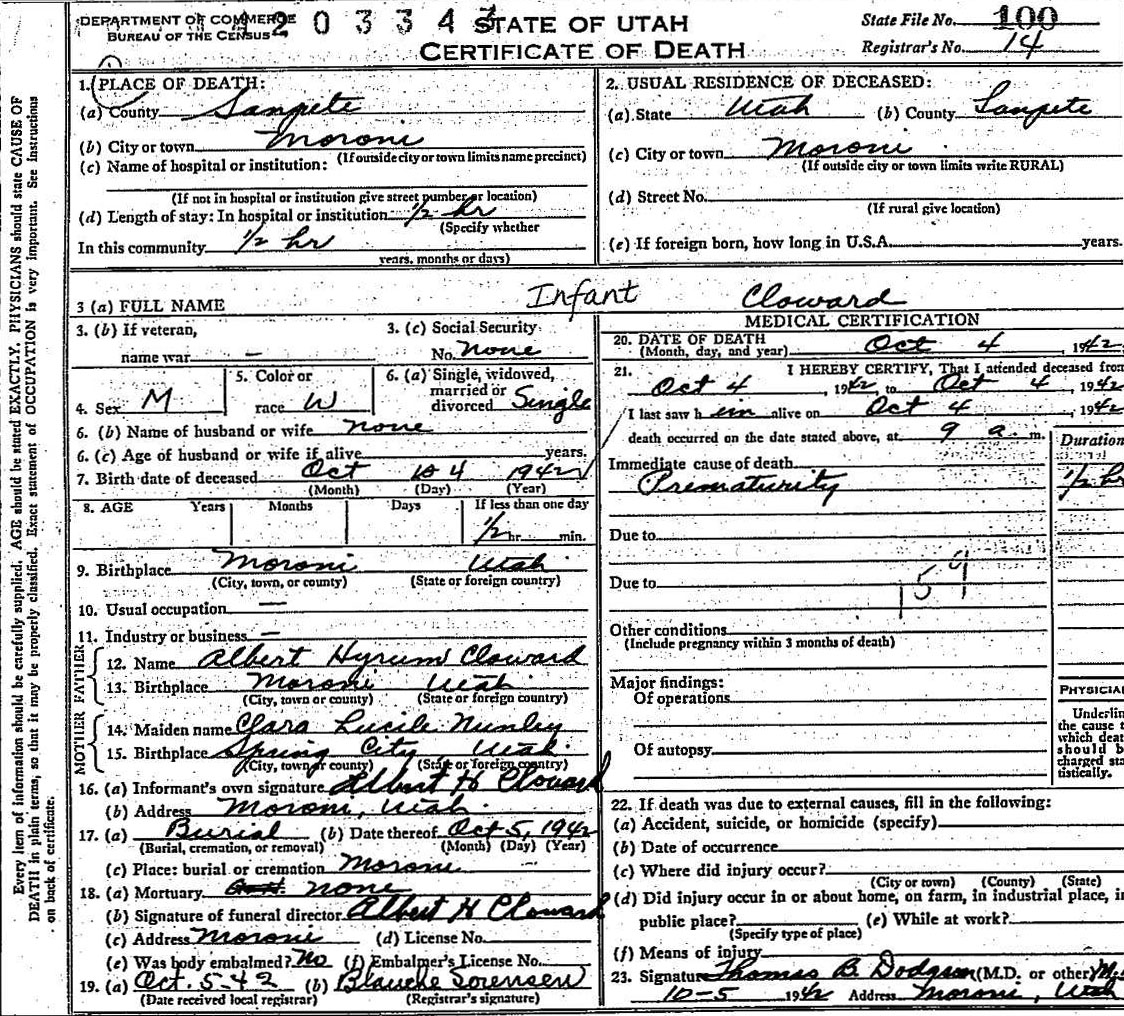 DEPARTMENT OF COMMERCE
BUREAU OF THE CENSUS
20334
STATE OF UTAH
CERTIFICATE OF DEATH
State File No. 100
Registrar's No. 14
1. PLACE OF DEATH:
(a) County Sanpete
(b) City or town Moroni
(If outside city or town limits name precinct)
(c) Name of hospital or institution:
(If not in hospital or institution give street number or location)
(d) Length of stay: In hospital or institution 1/2 hr
(Specify whether
In this community 1/2 hr
years, months or days)
2. USUAL RESIDENCE OF DECEASED:
(a) State Utah (b) County Sanpete
(c) City or town Moroni
(If outside city or town limits write RURAL)
(d) Street No.
(If rural give location)
(e) If foreign born, how long in U.S.A. years.
3 (a) FULL NAME Infant Cloward
3. (b) If veteran,
name war —
3. (c) Social Security
No. none
4. Sex M
5. Color or
race W
6. (a) Single, widowed,
married or
divorced Single
6. (b) Name of husband or wife none
6. (c) Age of husband or wife if alive years.
7. Birth date of deceased Oct 4 1942
(Month) (Day) (Year)
8. AGE Years Months Days If less than one day
1/2 hr. min.
9. Birthplace Moroni Utah
(City, town, or county) (State or foreign country)
10. Usual occupation —
11. Industry or business —
FATHER
12. Name Albert Hyrum Cloward
13. Birthplace Moroni Utah
(City, town or county) (State or foreign country)
MOTHER
14. Maiden name Clara Lucile Nunley
15. Birthplace Spring City, Utah
(City, town or county) (State or foreign country)
16. (a) Informant's own signature Albert H Cloward
(b) Address Moroni, Utah.
17. (a) Burial (b) Date thereof Oct 5, 1942
(Burial, cremation, or removal) (Month) (Day) (Year)
(c) Place: burial or cremation Moroni
18. (a) Mortuary none
(b) Signature of funeral director Albert H Cloward
(c) Address Moroni (d) License No.
(e) Was body embalmed? No (f) Embalmer's License No.
19. (a) Oct. 5-42 (b) Blanche Sorensen
(Date received local registrar) (Registrar's signature)
MEDICAL CERTIFICATION
20. DATE OF DEATH
(Month, day, and year) Oct 4, 1942
21. I HEREBY CERTIFY, That I attended deceased from
Oct 4, 1942 to Oct 4, 1942
I last saw h im alive on Oct 4, 1942
death occurred on the date stated above, at 9 a. m.
Duration
Immediate cause of death
Prematurity 1/2 hr
Due to
Due to
159
Other conditions
(Include pregnancy within 3 months of death)
Major findings:
Of operations
Of autopsy
PHYSICIA
Underlin
the cause t
which deat
should b
charged sta
tistically.
22. If death was due to external causes, fill in the following:
(a) Accident, suicide, or homicide (specify)
(b) Date of occurrence
(c) Where did injury occur?
(City or town) (County) (State)
(d) Did injury occur in or about home, on farm, in industrial place, in
public place? (e) While at work?
(Specify type of place)
(f) Means of injury
23. Signature Thomas B. Dodgson (M.D. or other) M.
10-5 1942 Address Moroni, Utah
Every item of information should be carefully supplied. AGE should be stated EXACTLY. PHYSICIANS should state CAUSE OF
DEATH in plain terms, so that it may be properly classified. Exact statement of OCCUPATION is very important. See instructions
on back of certificate.